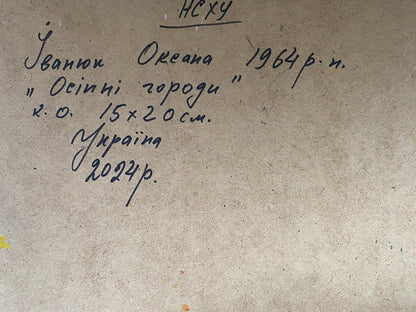 НСХУ
Іванюк Оксана 1964р.н.
„Осінні городи"
к.о. 15х20см.
Україна
2024р.